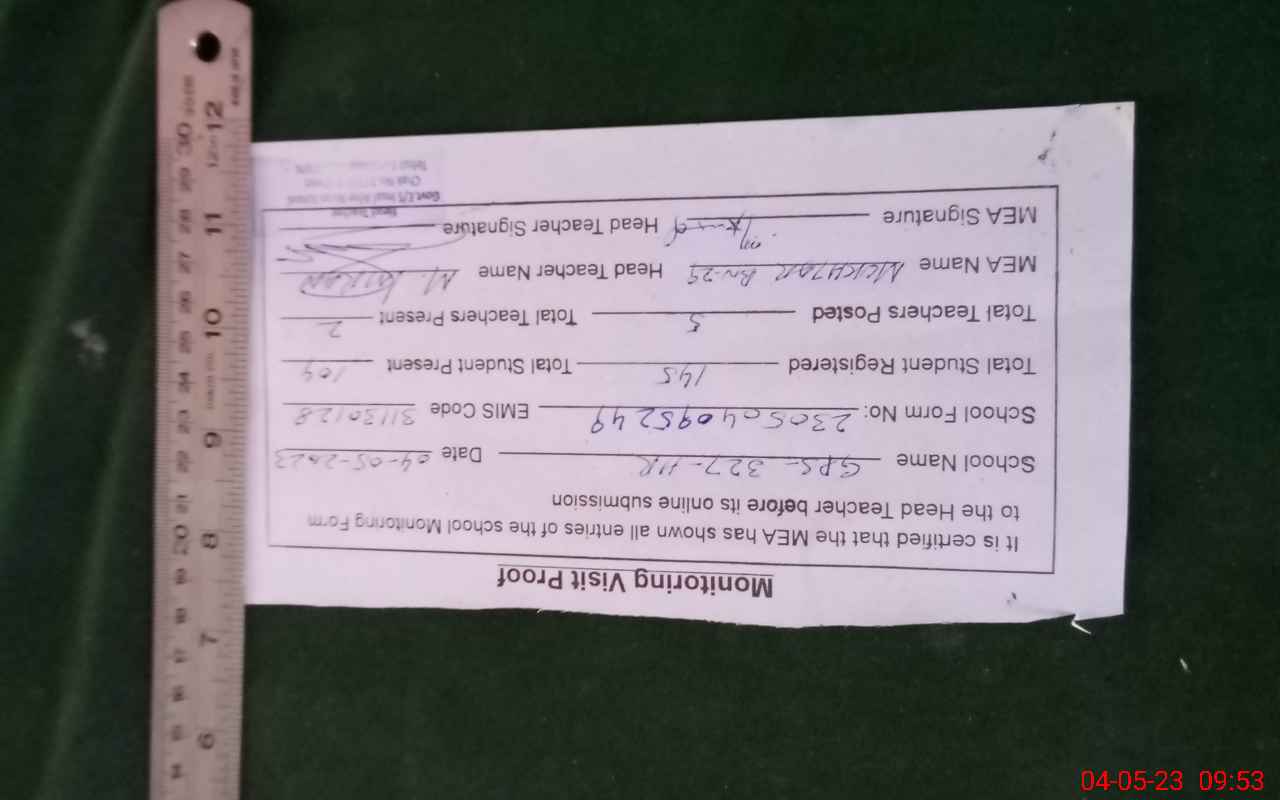 Monitoring Visit Proof
It is certified that the MEA has shown all entries of the school Monitoring Form
to the Head Teacher before its online submission
School Name GPS-327-HR Date 04-05-2023
School Form No: 2305040952 49 EMIS Code 31130128
Total Student Registered 145 Total Student Present 109
Total Teachers Posted 5 Total Teachers Present 2
MEA Name MUKHTAR BN-29 Head Teacher Name M. IMRAN
MEA Signature Head Teacher Signature
Head Teacher
04-05-23 09:53
30 29 28 27 26 25 24 23 22 21 20 19 18 17 16 15 14
12 11 10 9 8 7 6